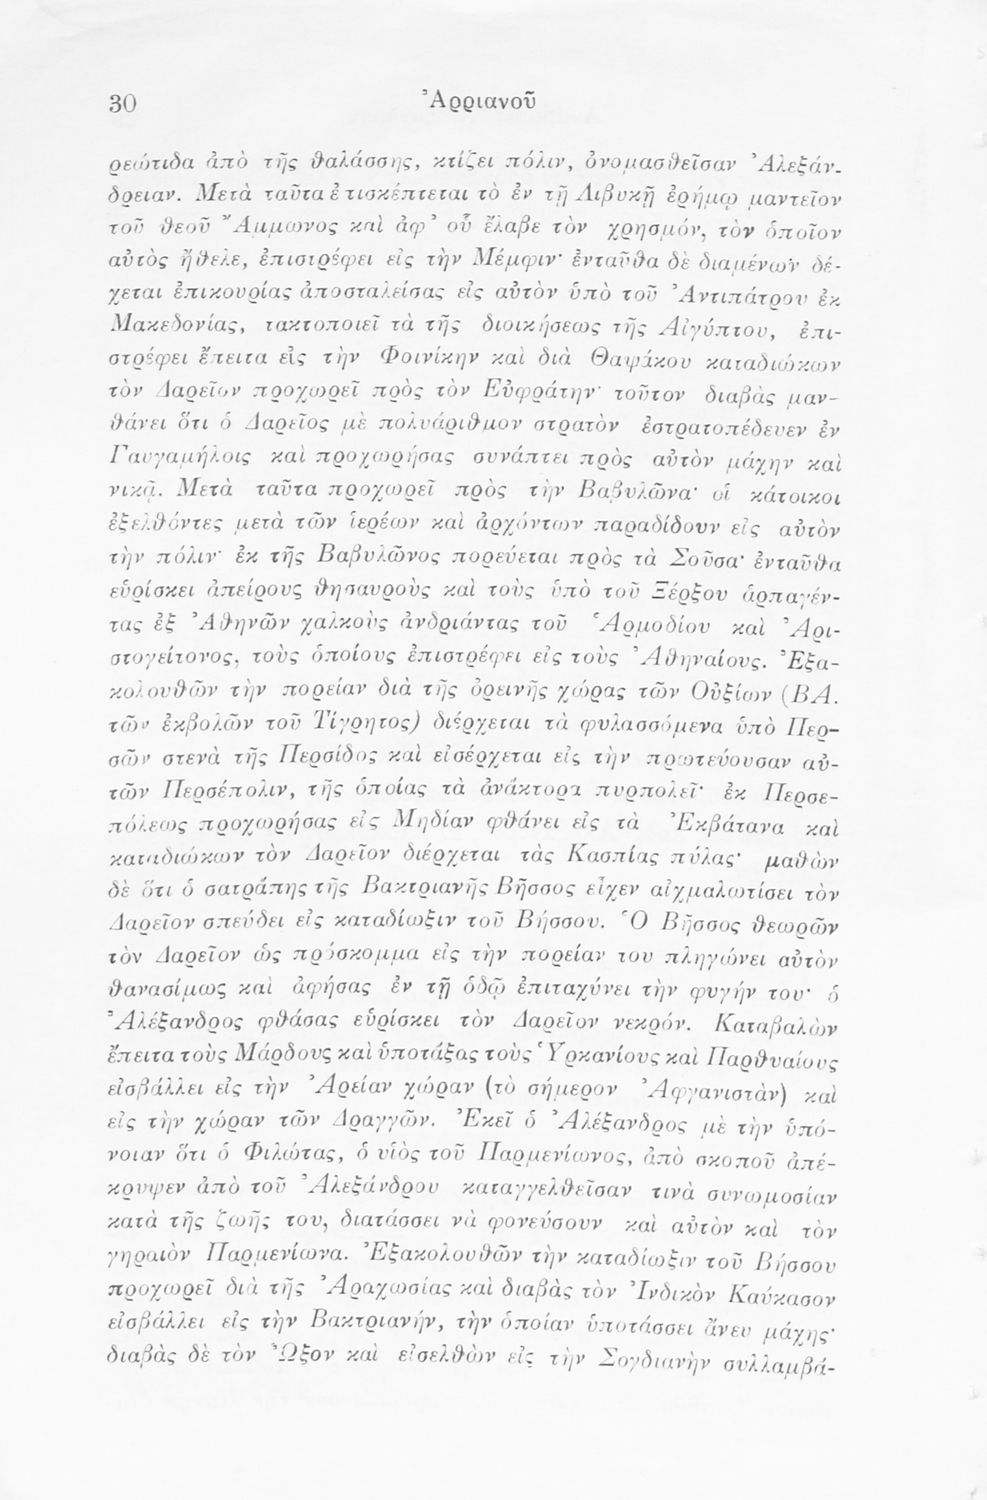 30
Ἀρριανοῦ
ρεώτιδα ἀπὸ τῆς θαλάσσης, κτίζει πόλιν, ὀνομασθεῖσαν Ἀλεξάν-
δρειαν. Μετὰ ταῦτα ἐπισκέπτεται τὸ ἐν τῇ Λιβυκῇ ἐρήμῳ μαντεῖον
τοῦ θεοῦ Ἄμμωνος καὶ ἀφ' οὗ ἔλαβε τὸν χρησμόν, τὸν ὁποῖον
αὐτὸς ἤθελε, ἐπιστρέφει εἰς τὴν Μέμφιν· ἐνταῦθα δὲ διαμένων δέ-
χεται ἐπικουρίας ἀποσταλείσας εἰς αὐτὸν ὑπὸ τοῦ Ἀντιπάτρου ἐκ
Μακεδονίας, τακτοποιεῖ τὰ τῆς διοικήσεως τῆς Αἰγύπτου, ἐπι-
στρέφει ἔπειτα εἰς τὴν Φοινίκην καὶ διὰ Θαψάκου καταδιώκων
τὸν Δαρεῖον προχωρεῖ πρὸς τὸν Εὐφράτην· τοῦτον διαβὰς μαν-
θάνει ὅτι ὁ Δαρεῖος μὲ πολυάριθμον στρατὸν ἐστρατοπέδευεν ἐν
Γαυγαμήλοις καὶ προχωρήσας συνάπτει πρὸς αὐτὸν μάχην καὶ
νικᾷ. Μετὰ ταῦτα προχωρεῖ πρὸς τὴν Βαβυλῶνα· οἱ κάτοικοι
ἐξελθόντες μετὰ τῶν ἱερέων καὶ ἀρχόντων παραδίδουν εἰς αὐτὸν
τὴν πόλιν· ἐκ τῆς Βαβυλῶνος πορεύεται πρὸς τὰ Σοῦσα· ἐνταῦθα
εὑρίσκει ἀπείρους θησαυροὺς καὶ τοὺς ὑπὸ τοῦ Ξέρξου ἁρπαγέν-
τας ἐξ Ἀθηνῶν χαλκοὺς ἀνδριάντας τοῦ Ἁρμοδίου καὶ Ἀρι-
στογείτονος, τοὺς ὁποίους ἐπιστρέφει εἰς τοὺς Ἀθηναίους. Ἐξα-
κολουθῶν τὴν πορείαν διὰ τῆς ὀρεινῆς χώρας τῶν Οὐξίων (ΒΑ.
τῶν ἐκβολῶν τοῦ Τίγρητος) διέρχεται τὰ φυλασσόμενα ὑπὸ Περ-
σῶν στενὰ τῆς Περσίδος καὶ εἰσέρχεται εἰς τὴν πρωτεύουσαν αὐ-
τῶν Περσέπολιν, τῆς ὁποίας τὰ ἀνάκτορα πυρπολεῖ· ἐκ Περσε-
πόλεως προχωρήσας εἰς Μηδίαν φθάνει εἰς τὰ Ἐκβάτανα καὶ
καταδιώκων τὸν Δαρεῖον διέρχεται τὰς Κασπίας πύλας· μαθὼν
δὲ ὅτι ὁ σατράπης τῆς Βακτριανῆς Βῆσσος εἶχεν αἰχμαλωτίσει τὸν
Δαρεῖον σπεύδει εἰς καταδίωξιν τοῦ Βήσσου. Ὁ Βῆσσος θεωρῶν
τὸν Δαρεῖον ὡς πρόσκομμα εἰς τὴν πορείαν του πληγώνει αὐτὸν
θανασίμως καὶ ἀφήσας ἐν τῇ ὁδῷ ἐπιταχύνει τὴν φυγήν του· ὁ
Ἀλέξανδρος φθάσας εὑρίσκει τὸν Δαρεῖον νεκρόν. Καταβαλὼν
ἔπειτα τοὺς Μάρδους καὶ ὑποτάξας τοὺς Ὑρκανίους καὶ Παρθυαίους
εἰσβάλλει εἰς τὴν Ἀρείαν χώραν (τὸ σήμερον Ἀφγανιστὰν) καὶ
εἰς τὴν χώραν τῶν Δραγγῶν. Ἐκεῖ ὁ Ἀλέξανδρος μὲ τὴν ὑπό-
νοιαν ὅτι ὁ Φιλώτας, ὁ υἱὸς τοῦ Παρμενίωνος, ἀπὸ σκοποῦ ἀπέ-
κρυψεν ἀπὸ τοῦ Ἀλεξάνδρου καταγγελθεῖσαν τινὰ συνωμοσίαν
κατὰ τῆς ζωῆς του, διατάσσει νὰ φονεύσουν καὶ αὐτὸν καὶ τὸν
γηραιὸν Παρμενίωνα. Ἐξακολουθῶν τὴν καταδίωξιν τοῦ Βήσσου
προχωρεῖ διὰ τῆς Ἀραχωσίας καὶ διαβὰς τὸν Ἰνδικὸν Καύκασον
εἰσβάλλει εἰς τὴν Βακτριανήν, τὴν ὁποίαν ὑποτάσσει ἄνευ μάχης·
διαβὰς δὲ τὸν Ὦξον καὶ εἰσελθὼν εἰς τὴν Σογδιανὴν συλλαμβά-